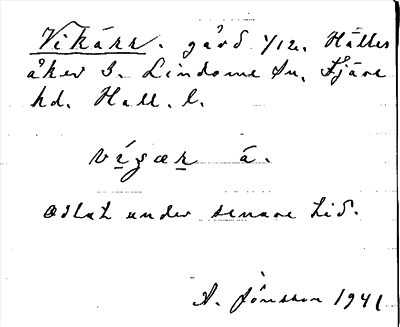 Vikärr. gård 1/12. Hälles
åker S. Lindome sn, Fjäre
hd. Hall. l.
vígær á.
odlat under senare tid.
A. Jönsson 1941